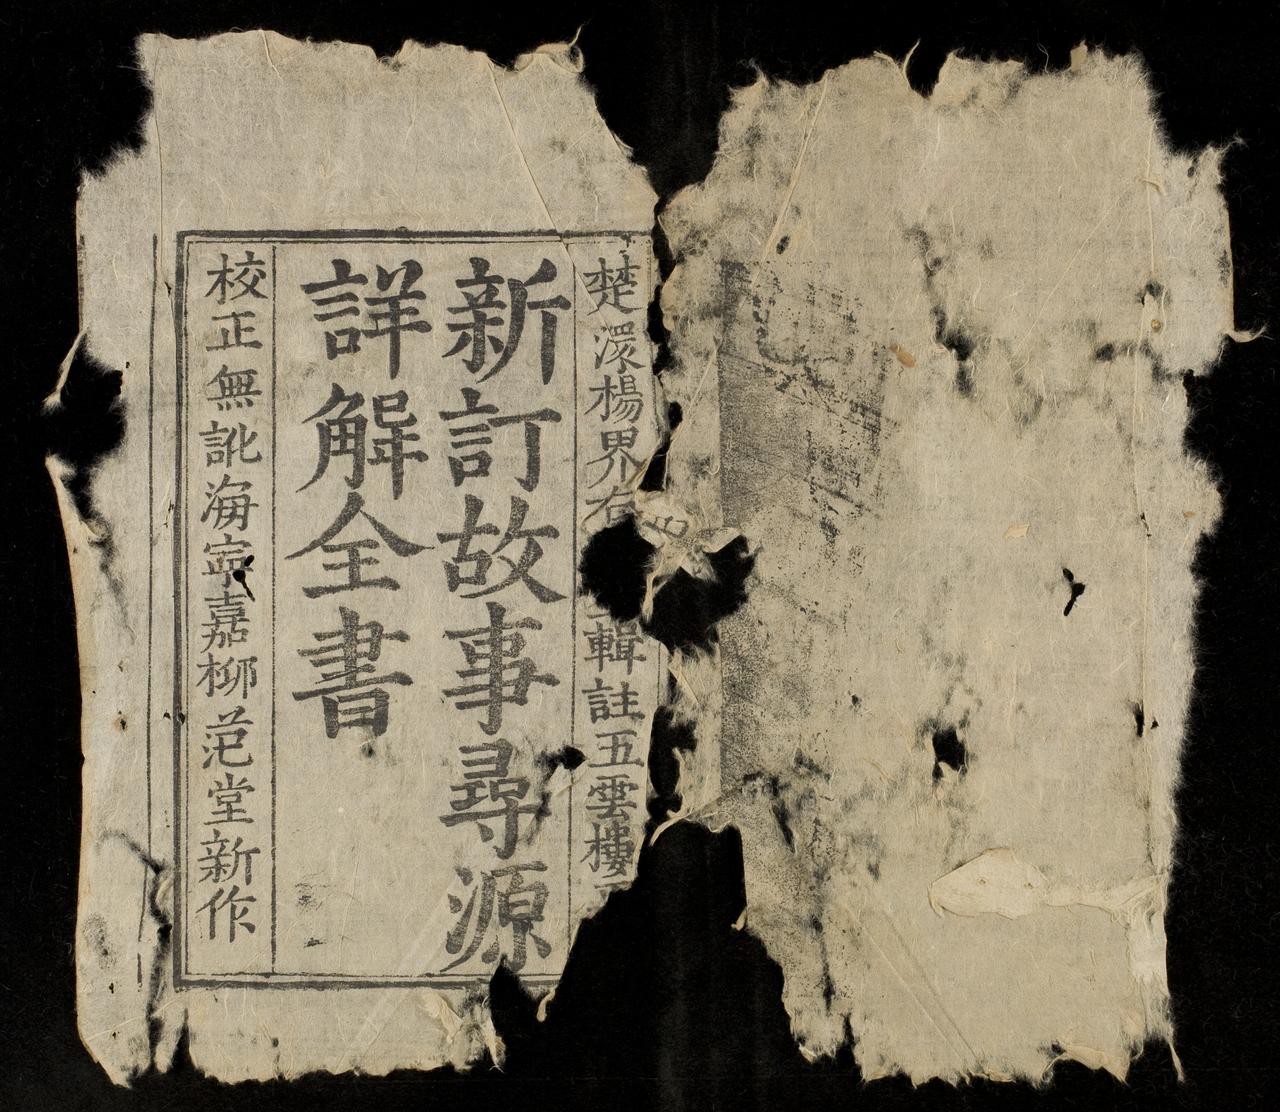 楚澴楊界右
輯註五雲樓
新訂故事尋源
詳解全書
校正無訛海寧嘉柳范堂新作